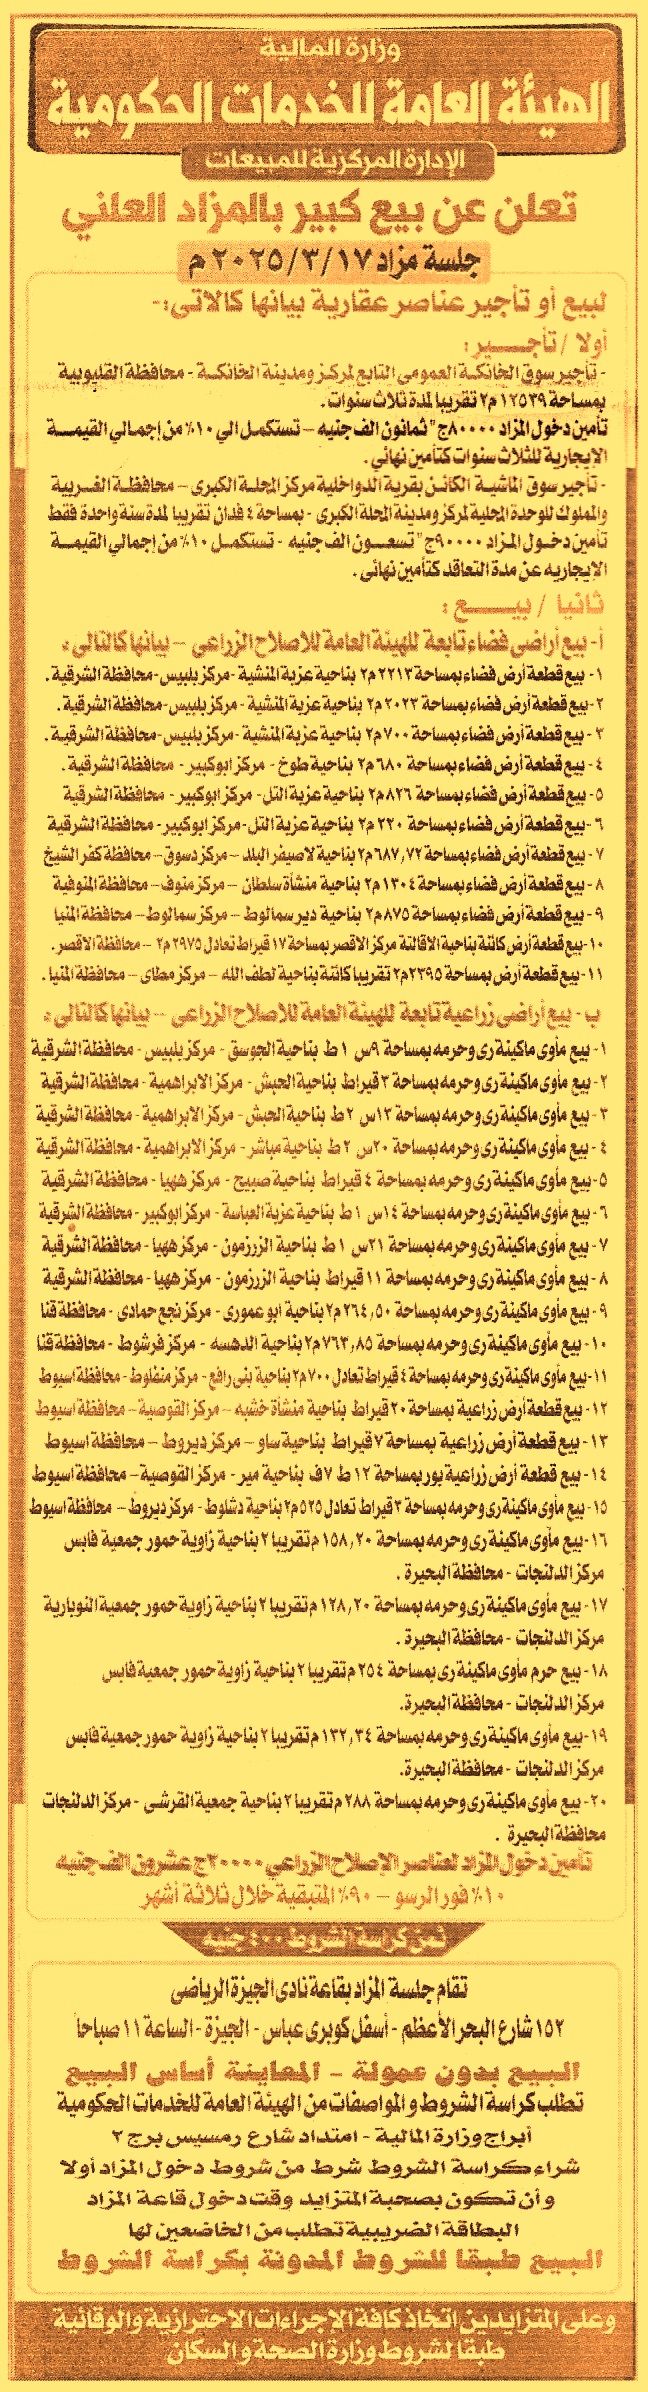 وزارة المالية
الهيئة العامة للخدمات الحكومية
الإدارة المركزية للمبيعات
تعلن عن بيع كبير بالمزاد العلني
جلسة مزاد ٢٠٢٥/٣/١٧ م
لبيع أو تأجير عناصر عقارية بيانها كالاتى:-
أولا / تأجـــــير :
- تأجير سوق الخانكة العمومى التابع لمركز ومدينة الخانكة - محافظة القليوبية
بمساحة ١٢٥٣٩ م٢ تقريبا لمدة ثلاث سنوات .
تأمين دخول المزاد ٨٠٠٠٠ج " ثمانون الف جنيه – تستكمل الي ١٠٪ من إجمالي القيمـــة
الإيجارية للثلاث سنوات كتأمين نهائي .
- تأجير سوق الماشية الكائن بقرية الدواخلية مركز المحلة الكبرى – محافظة الغربية
والمملوك للوحدة المحلية لمركز ومدينة المحلة الكبرى - بمساحة ٤ فدان تقريبا لمدة سنة واحدة فقط
تأمين دخول المزاد ٩٠٠٠٠ج " تسعـون الف جنيه - تستكمـل ١٠٪ من إجمالي القيمـــة
الإيجاريه عن مدة التعاقد كتأمين نهائي .
ثانيا / بيـــــــع :
أ- بيع أراضى فضاء تابعة للهيئة العامة للاصلاح الزراعى – بيانها كالتالى:
١- بيع قطعة أرض فضاء بمساحة ٢٢١٣ م٢ بناحية عزبة المنشية -مركز بلبيس-محافظة الشرقية .
٢- بيع قطعة أرض فضاء بمساحة ٢٠٢٣ م٢ بناحية عزبة المنشية - مركز بلبيس-محافظة الشرقية .
٣ - بيع قطعة أرض فضاء بمساحة ٧٠٠ م٢ بناحية عزبة المنشية -مركز بلبيس-محافظة الشرقية .
٤- بيع قطعة أرض فضاء بمساحة ٦٨٠ م٢ بناحية طوخ - مركز ابوكبير - محافظة الشرقية .
٥- بيع قطعة أرض فضاء بمساحة ٨٢٦ م٢ بناحية عزبة التل- مركز ابوكبير - محافظة الشرقية
٦- بيع قطعة أرض فضاء بمساحة ٢٢٠ م٢ بناحية عزبة التل-مركز ابوكبير - محافظة الشرقية
٧- بيع قطعة أرض فضاء بمساحة ٦٨٧,٧٢ م٢ بناحية لاصيفر البلد – مركز دسوق – محافظة كفر الشيخ
٨- بيع قطعة أرض فضاء بمساحة ١٣٠٤ م٢ بناحية منشأة سلطان – مركز منوف – محافظة المنوفية
٩- بيع قطعة أرض فضاء بمساحة ٨٧٥ م٢ بناحية دير سمالوط – مركز سمالوط – محافظة المنيا
١٠- بيع قطعة أرض كائنة بناحية الاقالتة مركز الاقصر بمساحة ١٧ قيراط تعادل ٢٩٧٥ م٢ – محافظة الاقصر .
١١- بيع قطعة أرض بمساحة ٢٣٩٥ م٢ تقريبا كائنة بناحية لطف الله – مركز مطاى – محافظة المنيا .
ب - بيع أراضى زراعية تابعة للهيئة العامة للاصلاح الزراعى – بيانها كالتالى:
١- بيع مأوى ماكينة رى وحرمه بمساحة ٩س ١ط بناحية الجوسق - مركز بلبيس - محافظة الشرقية
٢- بيع مأوى ماكينة رى وحرمه بمساحة ٣ قيراط بناحية الحبش - مركز الابراهمية - محافظة الشرقية
٣ - بيع مأوى ماكينة رى وحرمه بمساحة ١٣س ٢ط بناحية الحبش - مركز الابراهمية - محافظة الشرقية
٤ - بيع مأوى ماكينة رى وحرمه بمساحة ٢٠س ٢ط بناحية مباشر - مركز الابراهمية - محافظة الشرقية
٥- بيع مأوى ماكينة رى وحرمه بمساحة ٤ قيراط بناحية صبيح - مركز ههيا - محافظة الشرقية
٦- بيع مأوى ماكينة رى وحرمه بمساحة ١٤س ١ط بناحية عزبة العباسة - مركز ابوكبير - محافظة الشرقية
٧- بيع مأوى ماكينة رى وحرمه بمساحة ٢١س ١ط بناحية الزرزمون - مركز ههيا - محافظة الشرقية
٨- بيع مأوى ماكينة رى وحرمه بمساحة ١١ قيراط بناحية الزرزمون - مركز ههيا - محافظة الشرقية
٩- بيع مأوى ماكينة رى وحرمه بمساحة ٢٦٤,٥٠ م٢ بناحية ابو عمورى - مركز نجع حمادى - محافظة قنا
١٠- بيع مأوى ماكينة رى وحرمه بمساحة ٧٦٣,٨٥ م٢ بناحية الدهسه - مركز فرشوط - محافظة قنا
١١- بيع مأوى ماكينة رى وحرمه بمساحة ٤ قيراط تعادل ٧٠٠ م٢ بناحية بنى رافع - مركز منفلوط - محافظة اسيوط
١٢- بيع قطعة أرض زراعية بمساحة ٢٠ قيراط بناحية منشأة خشبه – مركز القوصية – محافظة اسيوط
١٣- بيع قطعة أرض زراعية بمساحة ٧ قيراط بناحية ساو – مركز ديروط – محافظة اسيوط
١٤- بيع قطعة أرض زراعيه بور بمساحة ١٢ط ٧ف بناحية مير - مركز القوصية – محافظة اسيوط
١٥- بيع مأوى ماكينة رى وحرمه بمساحة ٣ قيراط تعادل ٥٢٥ م٢ بناحية دشلوط - مركز ديروط – محافظة اسيوط
١٦- بيع مأوى ماكينة رى وحرمه بمساحة ١٥٨,٢٠ م تقريبا ٢ بناحية زاوية حمور جمعية فابس
مركز الدلنجات - محافظة البحيرة .
١٧- بيع مأوى ماكينة رى وحرمه بمساحة ١٢٨,٢٠ م تقريبا ٢ بناحية زاوية حمور جمعية النوبارية
مركز الدلنجات - محافظة البحيرة .
١٨- بيع حرم مأوى ماكينة رى بمساحة ٢٥٤ م تقريبا ٢ بناحية زاوية حمور جمعية فابس
مركز الدلنجات - محافظة البحيرة.
١٩- بيع مأوى ماكينة رى وحرمه بمساحة ١٣٢,٣٤ م تقريبا ٢ بناحية زاوية حمور جمعية فابس
مركز الدلنجات - محافظة البحيرة.
٢٠- بيع مأوى ماكينة رى وحرمه بمساحة ٢٨٨ م تقريبا ٢ بناحية جمعية القرشى - مركز الدلنجات
محافظة البحيرة .
تأمين دخول المزاد لعناصر الإصلاح الزراعي ٢٠٠٠٠ج عشرون الف جنيه
١٠٪ فور الرسو – ٩٠٪ المتبقية خلال ثلاثة أشهر
ثمن كراسة الشروط ٤٠٠ جنيه
تقام جلسة المزاد بقاعة نادى الجيزة الرياضى
١٥٢ شارع البحر الأعظم - أسفل كوبرى عباس - الجيزة - الساعة ١١ صباحاً
البيع بدون عمولة - المعاينة أساس البيع
تطلب كراسة الشروط والمواصفات من الهيئة العامة للخدمات الحكومية
أبراج وزارة المالية - امتداد شارع رمسيس برج ٢
شراء كراسة الشروط شرط من شروط دخول المزاد أولا
وأن تكون بصحبة المتزايد وقت دخول قاعة المزاد
البطاقة الضريبية تطلب من الخاضعين لها
البيع طبقا للشروط المدونة بكراسة الشروط
وعلى المتزايدين اتخاذ كافة الإجراءات الاحترازية والوقائية
طبقا لشروط وزارة الصحة والسكان